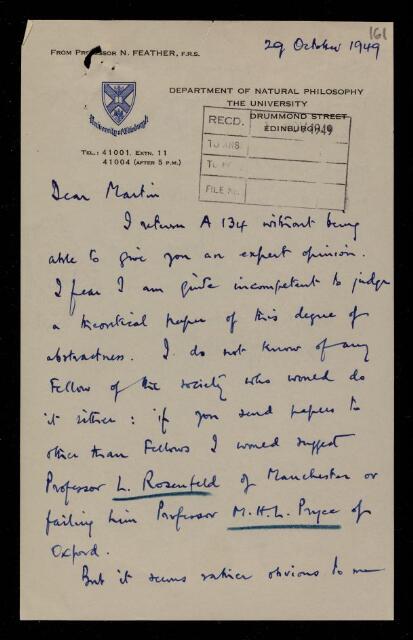 161
29 October 1949
FROM PROFESSOR N. FEATHER, F.R.S.
DEPARTMENT OF NATURAL PHILOSOPHY
THE UNIVERSITY
DRUMMOND STREET
EDINBURGH
University of Edinburgh
TEL.: 41001, EXTN. 11
41004 (AFTER 5 P.M.)
RECD. 1949
TO ANS.
TO
FILE No.
Dear Martin
I return A 134 without being
able to give you an expert opinion.
I fear I am quite incompetent to judge
a theoretical paper of this degree of
abstractness. I do not know of any
Fellow of the society who would do
it either: if you send papers to
other than Fellows I would suggest
Professor L. Rosenfeld of Manchester or
failing him Professor M.H.L. Pryce of
Oxford.
But it seems rather obvious to me